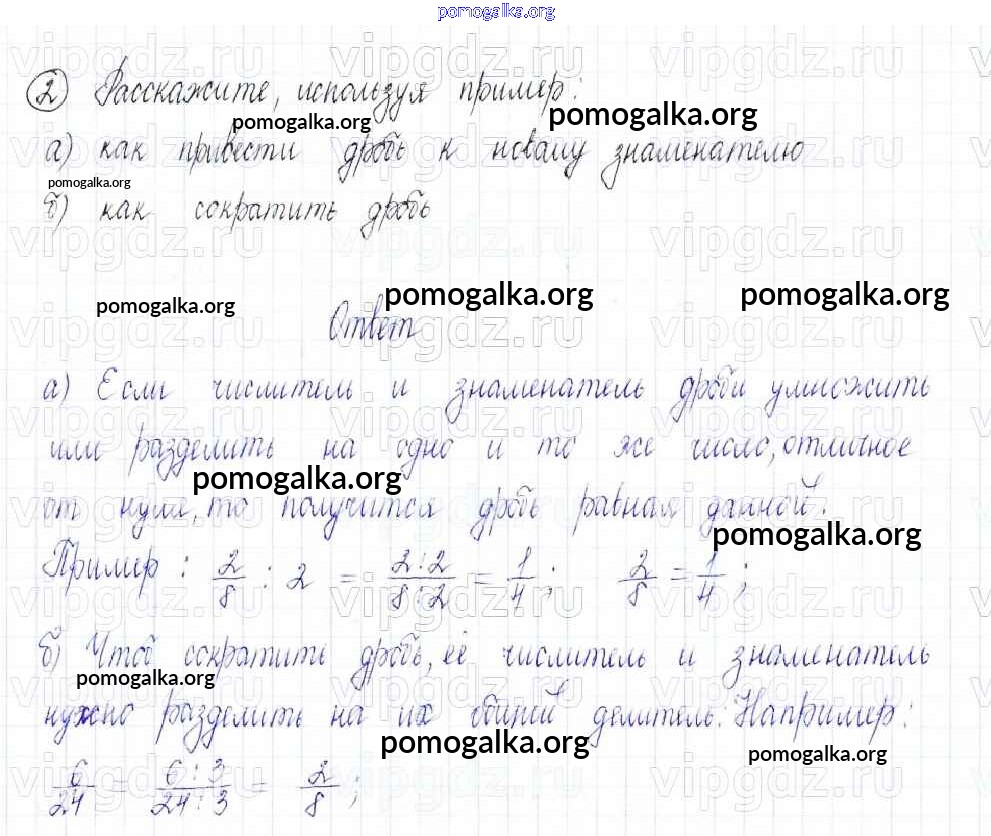 pomogalka.org
2 Расскажите, используя пример:
pomogalka.org pomogalka.org
а) как привести дробь к новому знаменателю
pomogalka.org
б) как сократить дробь
pomogalka.org pomogalka.org pomogalka.org
Ответ
а) Если числитель и знаменатель дроби умножить
или разделить на одно и то же число, отличное
pomogalka.org
от нуля, то получится дробь равная данной.
pomogalka.org
Пример: 2/8 : 2 = 2:2/8:2 = 1/4; 2/8 = 1/4;
б) Чтоб сократить дробь, её числитель и знаменатель
pomogalka.org
нужно разделить на их общий делитель. Например:
pomogalka.org pomogalka.org
6/24 = 6:3/24:3 = 2/8;
vipgdz.ru